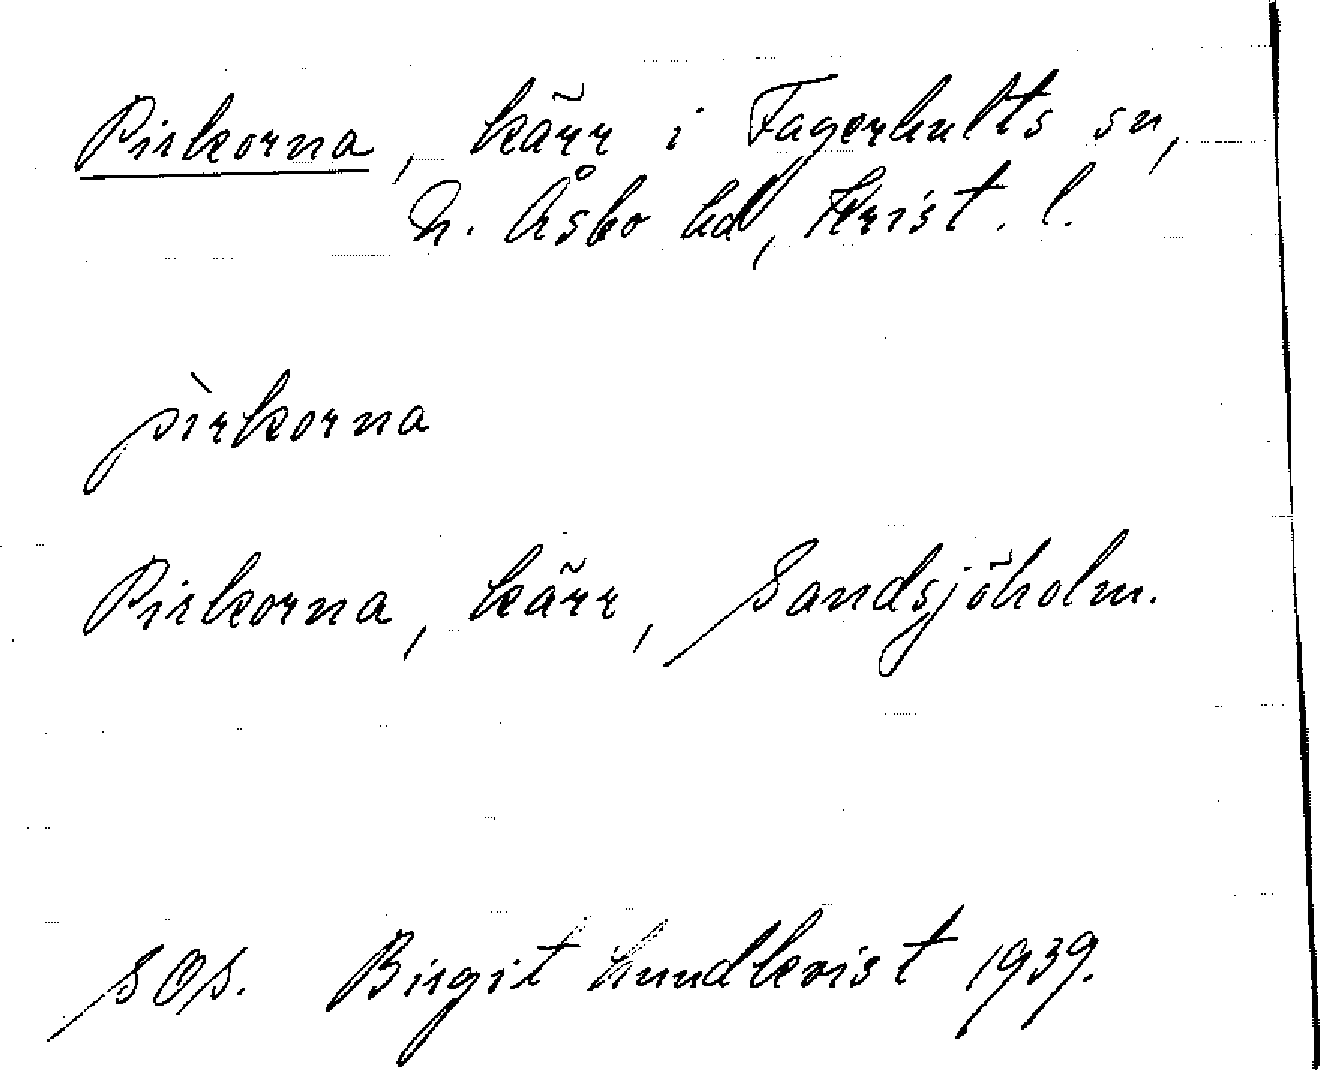 Pirkorna, kärr i Fagerhults sn,
N. Åsbo hd, Krist. l.
pìrkorna
Pirkorna, kärr, Sandsjöholm.
SOS. Birgit Lundkvist 1939.